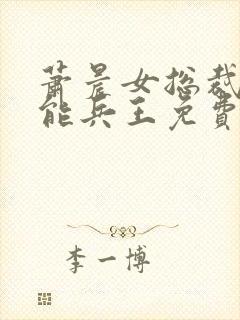 萧晨女总裁
能兵王免費
李一博